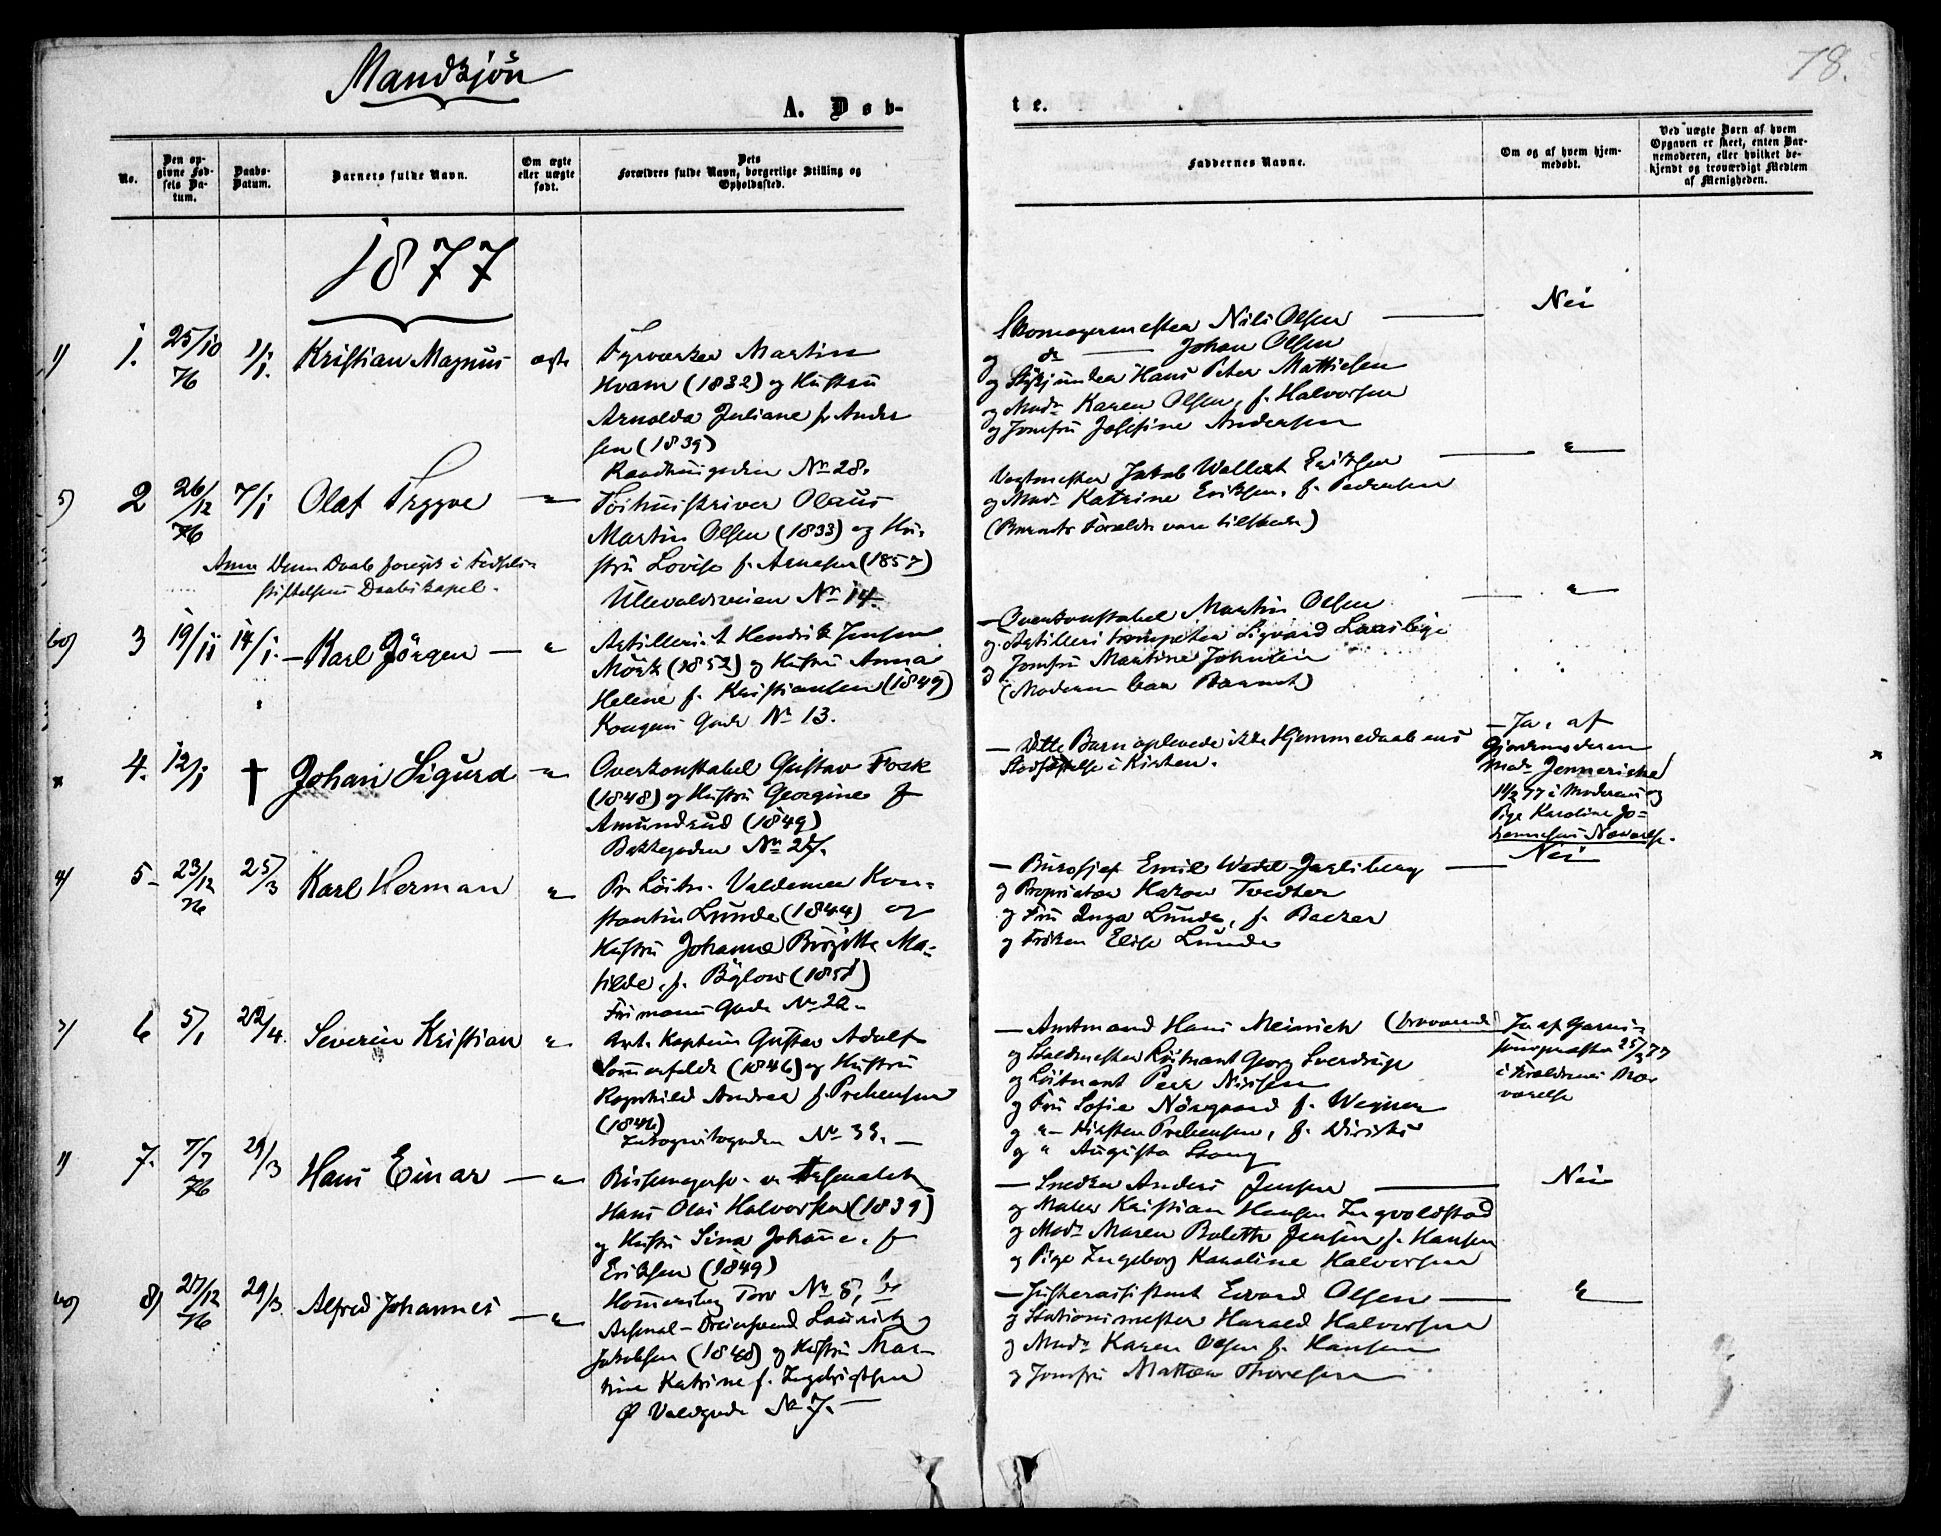 Mandkjön
78.
A. Døb-
te.
No.
Den op-
givne Fød-
sels Da-
tum.
Daabs-
Datum.
Barnets fulde Navn.
Om ægte
eller uægte
født.
Dets
Forældres fulde Navn, borgerlige Stilling og
Opholdssted.
Faddernes Navne.
Om og af hvem hjem-
medøbt.
Ved uægte Børn af hvem
Opgaven er skeet, enten Bar-
nemoderen, eller hvilket be-
kjendt og troværdigt Medlem
af Menigheden.
1877
1) 1. 25/10 76 1/1. Kristian Magnus ægte
Fyrværker Martin
Hvam (1832) og Hustru
Arnolda Juliane f. Ander
sen (1839)
Raadhusgaden No 28.
Skomagermester Nils Olsen — Nei
og do — Johan Olsen
og Hans Peter Mathiesen
og Mad. Karen Olsen, f. Halvorsen
og Jomfru Josefine Andersen
5) 2 26/12 76 7/1 Olaf Trygve — "
Töihusskriver Olaus
Martin Olsen (1833) og Hu-
stru Lovise f. Arnesen (1857)
Ullevoldsveien No 14.
Anm Denne Daab foregik i Fødsels-
stiftelsens Daabskapel.
Vagtmester Jakob Wallert Eriksen — "
og Mad. Katrine Eriksen, f. Pedersen
(Barnets Forældre vare tilstede)
60) 3 19/11 14/1. — Karl Jörgen — "
Artilleri.t Hendrik Jensen
Mörk (1852) og Hustru Anna
Helene f. Kristiansen (1849)
Kongens Gade No 13.
— Overkonstabel Martin Olsen — "
og Artilleri trompeter Sigvard
og Jomfru Martine Johnsen
(Moderen bar Barnet)
x 4. 12/1 † Johan Sigurd — "
Overkonstabel Gustav Fock
(1848) og Hustru Georgine f
Amundrud (1849)
Bakkegaden No 27.
— Dette Barn oplevede ikke Hjemmedaabens
Stadfæstelse i Kirken.
— Ja, af
Gjordemoderen
Mad. Jennerich
77 i Moderens og
Pige Karoline Jo-
hannesens Nærvær.
x
4) 5 — 23/12 76 25/3 Karl Herman "
Pr. Löitn. Valdemar Kon-
stantin Lunde (1844) og
Hustru Johanne Birgitte Ma-
tilde, f. Bülow (1851)
Frimanns Gade No 22.
— Buroschef Emil Wedel Jarlsberg — Nei
og Proprietær Haxon Tvedter
og Fru Inga Lunde, f. Backer
og Fröken Elise Lunde
7) 6 5/1 22/4. Severin Kristian "
Art. Kaptein Gustav Adolf
Sommerfeldt (1846) og Hustru
Ragnhild Andrea f. Prebensen
(1846)
No 33. —
— Amtmand Hans Meinich (fraværende)
og Staldmester Löitnant Georg Sverdrup
og Löitnant Peer Nissen
og Fru Sofie Nörgaard f. Wegner
og " Kirsten Prebensen, f.
og " Augusta Stang
Ja af Garni-
sonspræsten 25/1 77
i Forældrenes Nær
værelse
1) 7. 7/7 76 29/3 Hans Einar — "
Bössemagersv. v. Arsenalet
Hans Olai Halvorsen (1839)
og Hustru Sina Johanne, f
Eriksen (1849)
Hommersborg Torv No 8,
— Snedker Anders Jensen — Nei
og Maler Kristian Hansen Ingvoldstad
og Mad. Maren Bolette Jensen f. Hansen
og Pige Ingeborg Karoline Halvorsen
40) 8) 27/12 76 29/3 Alfred Johannes — "
Arsenal- Lauritz
Jakobsen (1848) og Hustru Mar-
tine Katrine f. Ingebrigtsen
Ø Voldgade No 7. —
— Justerassistent Edvard Olsen — "
og Stationsmester Harald Halvorsen
og Mad. Karen Olsen f. Hansen
og Jomfru Mathea Thoresen